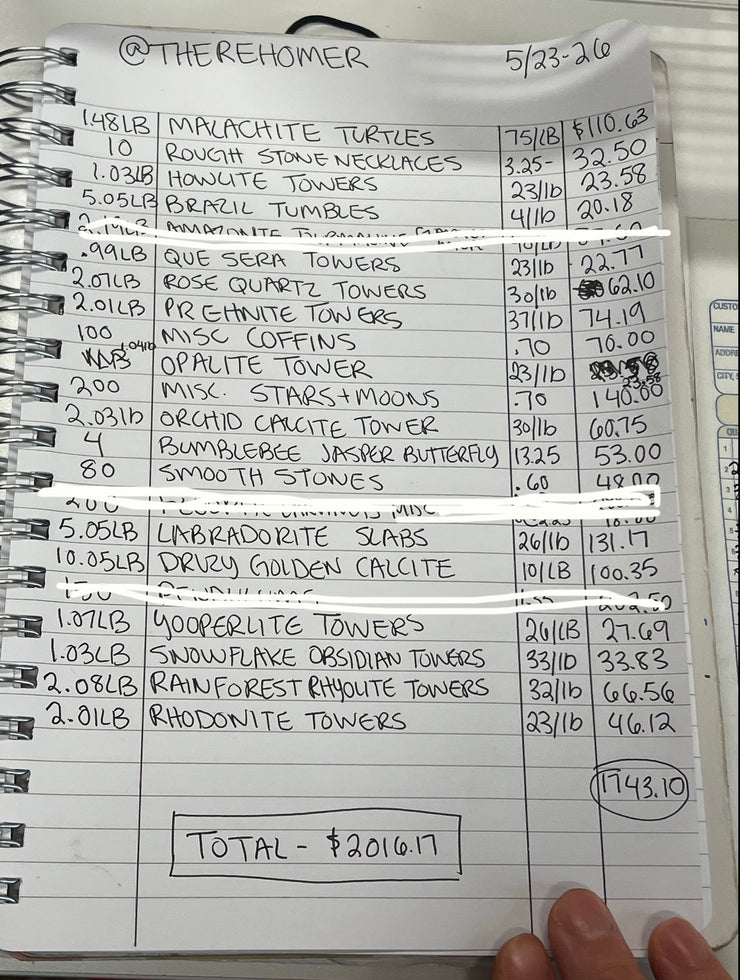 @THEREHOMER 5/23-26
1.48LB MALACHITE TURTLES 75/LB $110.63
10 ROUGH STONE NECKLACES 3.25- 32.50
1.03LB HOWLITE TOWERS 23/lb 23.58
5.05LB BRAZIL TUMBLES 4/lb 20.18
AMAZONITE
.99LB QUE SERA TOWERS 23/lb 22.77
2.07LB ROSE QUARTZ TOWERS 30/lb 62.10
2.01LB PREHNITE TOWERS 37/lb 74.19
100 MISC COFFINS .70 70.00
1.04lb OPALITE TOWER 23/lb 23.58
200 MISC. STARS+MOONS .70 140.00
2.03lb ORCHID CALCITE TOWER 30/lb 60.75
4 BUMBLEBEE JASPER BUTTERFLY 13.25 53.00
80 SMOOTH STONES .60 48.00
200 MISC
5.05LB LABRADORITE SLABS 26/lb 131.17
10.05LB DRUZY GOLDEN CALCITE 10/LB 100.35
150 202.50
1.07LB YOOPERLITE TOWERS 26/LB 27.69
1.03LB SNOWFLAKE OBSIDIAN TOWERS 33/lb 33.83
2.08LB RAINFOREST RHYOLITE TOWERS 32/lb 66.56
2.01LB RHODONITE TOWERS 23/lb 46.12
1743.10
TOTAL - $2016.17
CUSTO
NAME
ADDRE
CITY,
QU
1
2
3
4
5